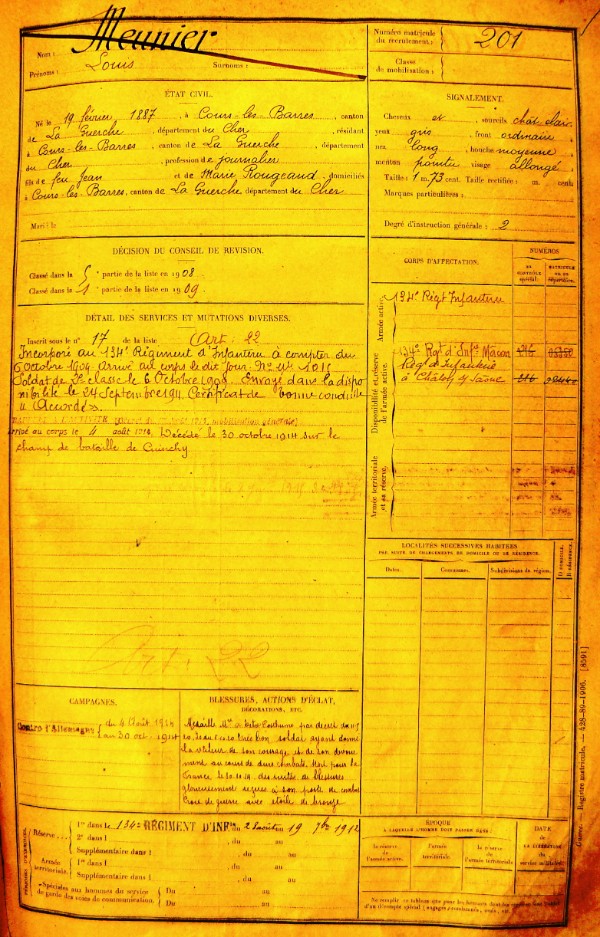 Nom : Meunier
Prénoms : Louis Surnoms :
Numéro matricule du recrutement : 201
Classe de mobilisation :
ÉTAT CIVIL.
Né le 19 février 1887, à Cours-les-Barres, canton
de La Guerche, département du Cher, résidant
à Cours-les-Barres, canton de La Guerche, département
du Cher, profession de journalier
fils de feu Jean et de Marie Rougeaud, domiciliés
à Cours-les-Barres, canton de La Guerche, département du Cher
Marié le
SIGNALEMENT.
Cheveux et , sourcils chat. clair,
yeux gris, front ordinaire,
nez long, bouche moyenne,
menton pointu visage allongé.
Taille : 1 m. 73 cent. Taille rectifiée : m. cent.
Marques particulières :
Degré d'instruction générale : 2
DÉCISION DU CONSEIL DE REVISION.
Classé dans la 5e partie de la liste en 1908.
Classé dans la 1 partie de la liste en 1909.
DÉTAIL DES SERVICES ET MUTATIONS DIVERSES.
Inscrit sous le n° 17 de la liste (Art: 22
Incorporé au 134e Régiment d'Infanterie à compter du
6 octobre 1909. Arrivé au corps le dit jour.
Soldat de 2e classe le 6 Octobre 1909. Envoyé dans la dispo
nibilité le 24 Septembre 1911. Certificat de bonne conduite
"Accordé".
mobilisation générale)
Arrivé au corps le 4 août 1914. Décédé le 30 octobre 1914 sur le
champ de bataille de Cuinchy
Art. 22
CORPS D'AFFECTATION.
NUMÉROS
Armée active.
134e Régt Infanterie
Disponibilité et réserve de l'armée active.
134e Regt d'Infie Macon
Regt d'Infanterie
à Châlon s/ Saône
Armée territoriale et sa réserve.
LOCALITÉS SUCCESSIVES HABITÉES
PAR SUITE DE CHANGEMENTS DE DOMICILE OU DE RÉSIDENCE.
Dates. Communes. Subdivisions de région.
D domicile. R résidence.
CAMPAGNES.
Contre l'Allemagne du 4 Août 1914
au 30 oct. 1914
BLESSURES, ACTIONS D'ÉCLAT,
DÉCORATIONS, ETC.
Médaille Mre à titre Posthume par décret du
Très bon soldat ayant donné
la valeur de son courage et de son dévoue
ment au cours de durs combats. Mort pour la
France, le 30.10.14. des suites de blessures
glorieusement reçues à son poste de combat
Croix de guerre avec étoile de bronze
Réserve
1re dans le 134e RÉGIMENT D'INFie du 2 au 19 7bre 1912
2e dans l , du au
Supplémentaire dans l , du au
Armée territoriale.
1re dans l , du au
Supplémentaire dans l , du au
Spéciales aux hommes du service
de garde des voies de communication.
Du au
Du au
ÉPOQUE
À LAQUELLE L'HOMME DOIT PASSER DANS :
la réserve de l'armée active.
l'armée territoriale.
la réserve de l'armée territoriale.
DATE
DE LA LIBÉRATION
du service militaire.
Registre matricule. — 428-89-1906. [8591]